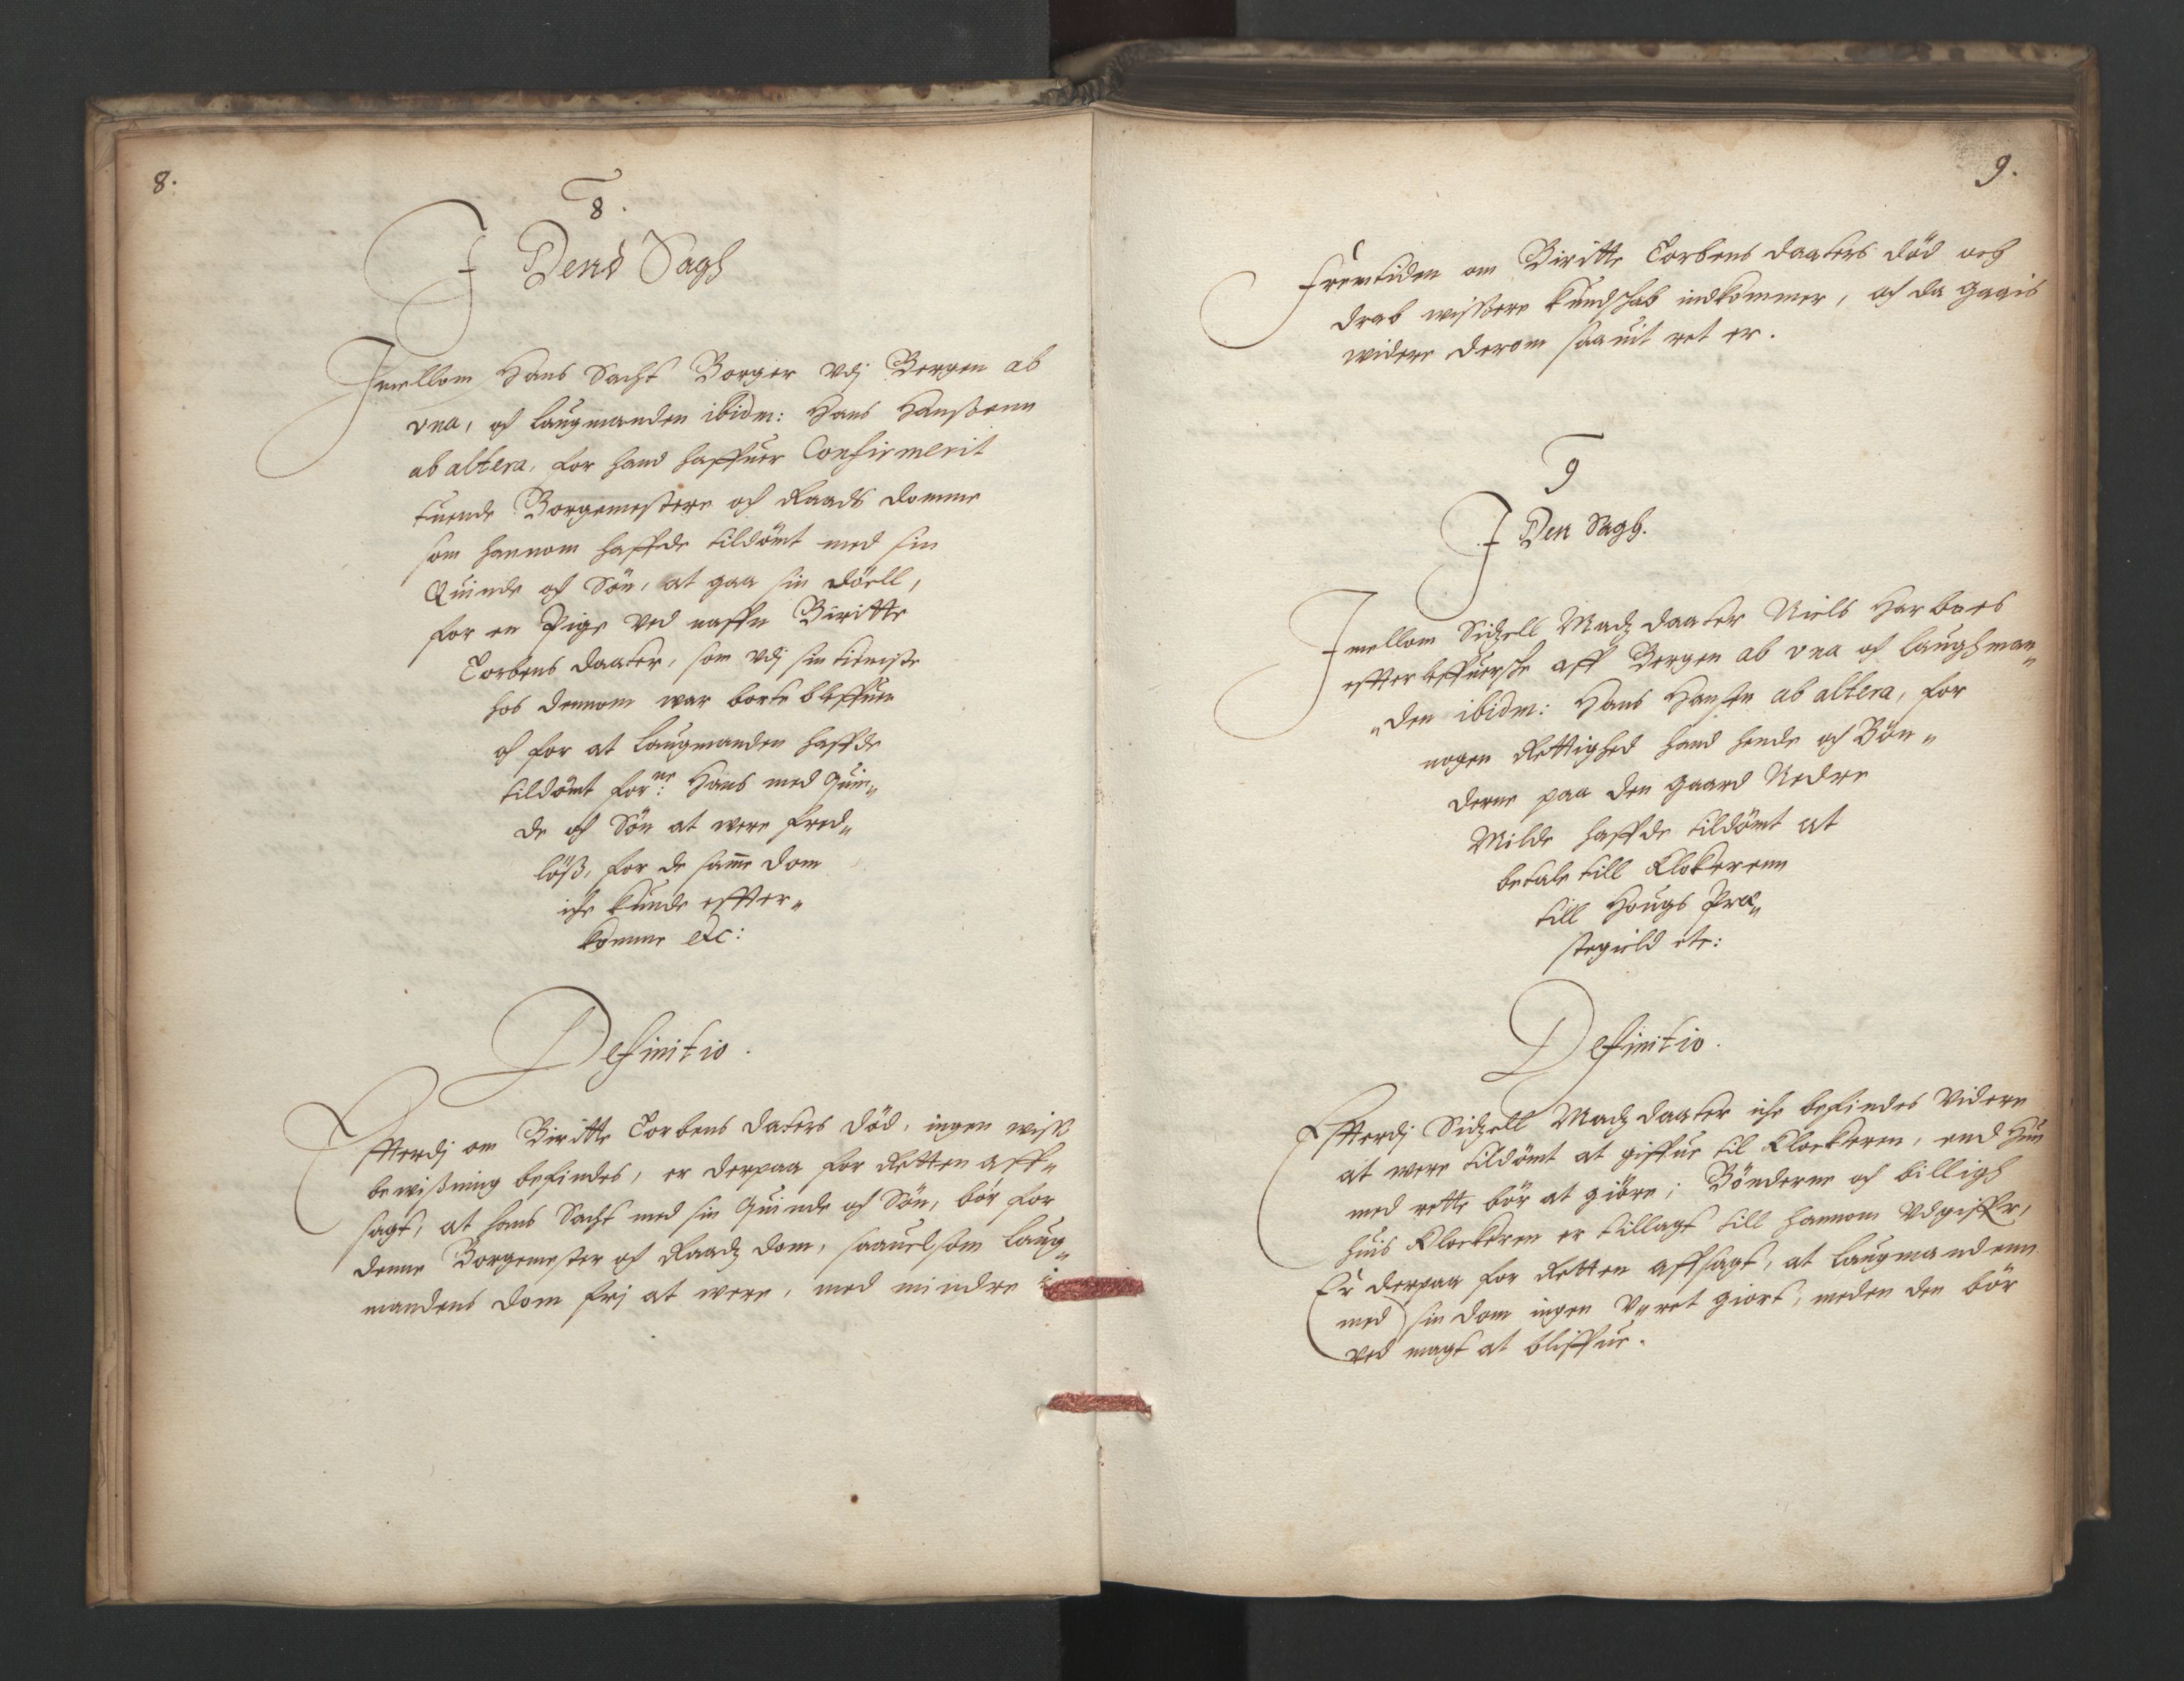 8.
8.
J Dend Sagh
Jmellom Hans Sacht Borger vdj Bergen ab
vna, och Laugmanden ibidm: Hans Hanßenn
ab altera, for hand haffuer Confirmerit
tuende Borgemestere och Raads domme
som hannom haffde tildömt med sin
Quinde och Sön, at gaa sin döell,
for en Pige ved naffn Biritte
Torbens daater, som vdj sin tieniste
hos dennom war borte bleffuen
och for at Laugmanden haffde
tildömt forne: Hans med Quin„
de och Sön at were fred„
löß, for de samme dom
iche kunde effter„
komme etc:
Definitio.
Effterdj om Biritte Torbens daters död, ingen wiss
bewißning befindes, er derpaa for Retten aff„
sagt, at Hans Sacht med sin Quinde och Sön, bör for
denne Borgemester och Raadz dom, saauelsom Laug„
mandens dom frj at were, med mindre i
9.
fremtiden om Biritte Torbens daaters död och
drab wissere kundschab indkommer, och da gaais
widere derom saauit ret er.
9
J Den Sagh.
Jmellom Sidzell Madz daater Niels Harboes
effterleffuersche aff Bergen ab vna och Laughman„
„den ibidm: Hans Hansen ab altera, for
nogen Rettighed hand hende och Bön„
derne paa den gaard Nedre
Milde haffde tildömt at
betale till Klokerenn
till Hougs Præ„
stegield etc:
Definitio.
Effterdj Sidzell Madz daater iche befindes videre
at were tildömt at giffue til Klockeren, end hun
med rette bör at giöre; Bönderne och billigh
huis Klockeren er tillagt till hannom vdgiffer,
Er derpaa for Retten affsagt, at Laugmandenn
med sin dom ingen V„ret giort, meden den bör
ved magt at bliffue.